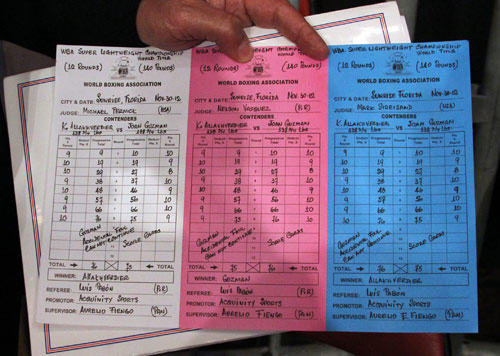 WBA SUPER LIGHTWEIGHT CHAMPIONSHIP
WORLD TITLE
(12 ROUNDS) (140 POUNDS)
WORLD BOXING ASSOCIATION
CITY & DATE: SUNRISE, FLORIDA NOV-30-12
JUDGE: MICHAEL PERNICK (USA)
CONTENDERS
K. ALLAKHVERDIEV VS JOAN GUZMAN
9 9 10 10
10 19 19 9
10 29 27 8
9 38 37 10
10 48 46 9
9 57 56 10
9 66 66 10
10 76 75 9
GUZMAN
ACCIDENTAL FOUL
CAN NOT CONTINUE
SCORE CARDS
TOTAL 76 75 TOTAL
WINNER: ALLAKHVERDIEV
REFEREE: LUIS PABON (P.R)
PROMOTOR: ACQUINITY SPORTS
SUPERVISOR: AURELIO FIENGO (PAN)
WBA SUPER LIGHTWEIGHT
WORLD TITLE
(12 ROUNDS) (140 POUNDS)
WORLD BOXING ASSOCIATION
CITY & DATE: SUNRISE, FLORIDA NOV-30-12
JUDGE: NELSON VAZQUEZ (P.R)
CONTENDERS
K. ALLAKHVERDIEV VS JOAN GUZMAN
9 9 10 10
10 19 19 9
10 29 27 8
9 38 37 10
10 48 46 9
9 57 56 10
9 66 66 10
9 75 76 10
GUZMAN
ACCIDENTAL FOUL
CAN NOT CONTINUE
SCORE CARDS
TOTAL 75 76 TOTAL
WINNER: GUZMAN
REFEREE: LUIS PABON (P.R)
PROMOTOR: ACQUINITY SPORTS
SUPERVISOR: AURELIO FIENGO (PAN)
WBA SUPER LIGHTWEIGHT CHAMPIONSHIP
WORLD TITLE
(12 ROUNDS) (140 POUNDS)
WORLD BOXING ASSOCIATION
CITY & DATE: SUNRISE, FLORIDA NOV-30-12
JUDGE: MARK (USA)
CONTENDERS
K. ALLAKHVERDIEV VS JOAN GUZMAN
9 9 10 10
10 19 19 9
10 29 27 8
9 38 37 10
10 48 46 9
9 57 56 10
9 66 66 10
10 76 75 9
GUZMAN
ACCIDENTAL FOUL
CAN NOT CONTINUE
SCORE CARDS
TOTAL 76 75 TOTAL
WINNER: ALLAKHVERDIEV
REFEREE: LUIS PABON (P.R)
PROMOTOR: ACQUINITY SPORTS
SUPERVISOR: AURELIO F. FIENGO (PAN)